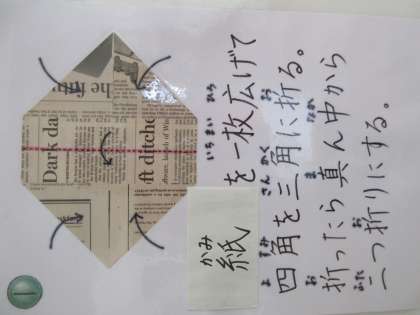 かみ いちまい ひろ
紙を一枚広げて
よ すみ さんかく お
四角を三角に折る。
お ま なか
折ったら真ん中から
ふた お
二つ折りにする。
Dark da
ft ditche